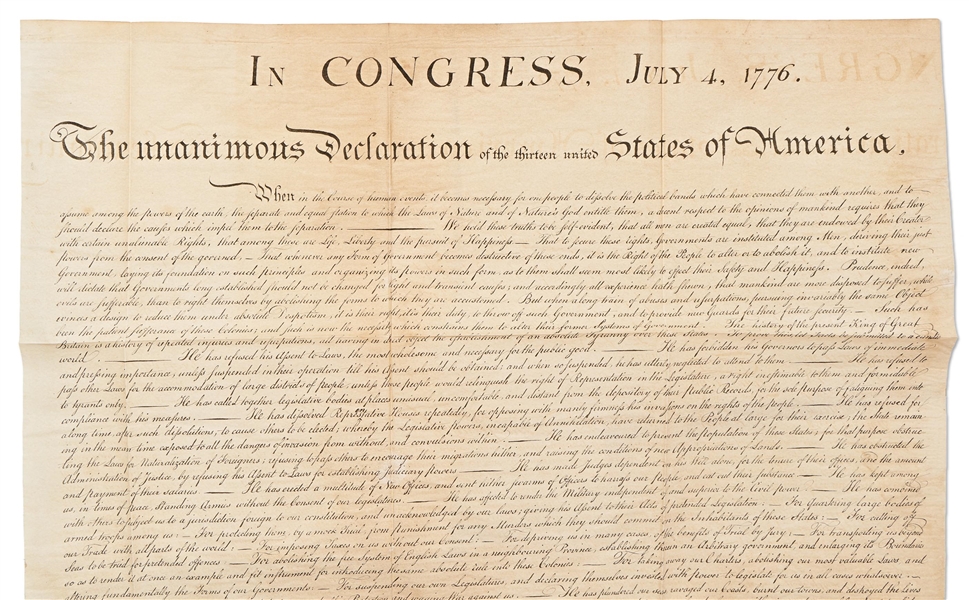 IN CONGRESS, JULY 4, 1776.
The unanimous Declaration of the thirteen united States of America,
When in the Course of human events, it becomes necessary for one people to dissolve the political bands which have connected them with another, and to
assume among the powers of the earth, the separate and equal station to which the Laws of Nature and of Nature's God entitle them, a decent respect to the opinions of mankind requires that they
should declare the causes which impel them to the separation. — We hold these truths to be self-evident, that all men are created equal, that they are endowed by their Creator
with certain unalienable Rights, that among these are Life, Liberty and the pursuit of Happiness. — That to secure these rights, Governments are instituted among Men, deriving their just
powers from the consent of the governed, — That whenever any Form of Government becomes destructive of these ends, it is the Right of the People to alter or to abolish it, and to institute new
Government, laying its foundation on such principles and organizing its powers in such form, as to them shall seem most likely to effect their Safety and Happiness. Prudence, indeed,
will dictate that Governments long established should not be changed for light and transient causes; and accordingly all experience hath shewn, that mankind are more disposed to suffer, while
evils are sufferable, than to right themselves by abolishing the forms to which they are accustomed. But when a long train of abuses and usurpations, pursuing invariably the same Object
evinces a design to reduce them under absolute Despotism, it is their right, it is their duty, to throw off such Government, and to provide new Guards for their future security. — Such has
been the patient sufferance of these Colonies; and such is now the necessity which constrains them to alter their former Systems of Government. The history of the present King of Great
Britain is a history of repeated injuries and usurpations, all having in direct object the establishment of an absolute Tyranny over these States. To prove this, let Facts be submitted to a candid
world. — He has refused his Assent to Laws, the most wholesome and necessary for the public good. — He has forbidden his Governors to pass Laws of immediate
and pressing importance, unless suspended in their operation till his Assent should be obtained; and when so suspended, he has utterly neglected to attend to them. — He has refused to
pass other Laws for the accommodation of large districts of people, unless those people would relinquish the right of Representation in the Legislature, a right inestimable to them and formidable
to tyrants only. — He has called together legislative bodies at places unusual, uncomfortable, and distant from the depository of their public Records, for the sole purpose of fatiguing them into
compliance with his measures. — He has dissolved Representative Houses repeatedly, for opposing with manly firmness his invasions on the rights of the people. — He has refused for
a long time, after such dissolutions, to cause others to be elected; whereby the Legislative powers, incapable of Annihilation, have returned to the People at large for their exercise; the State remain-
ing in the mean time exposed to all the dangers of invasion from without, and convulsions within. — He has endeavoured to prevent the Population of these States; for that purpose obstruc-
ting the Laws for Naturalization of Foreigners; refusing to pass others to encourage their migrations hither, and raising the conditions of new Appropriations of Lands. — He has obstructed the
Administration of Justice, by refusing his Assent to Laws for establishing Judiciary powers. — He has made Judges dependent on his Will alone, for the tenure of their offices, and the amount
and payment of their salaries. — He has erected a multitude of New Offices, and sent hither swarms of Officers to harrass our People, and eat out their substance. — He has kept among
us, in times of peace, Standing Armies without the Consent of our legislatures. — He has affected to render the Military independent of and superior to the Civil power. — He has combined
with others to subject us to a jurisdiction foreign to our constitution, and unacknowledged by our laws; giving his Assent to their Acts of pretended Legislation: — For Quartering large bodies of
armed troops among us: — For protecting them, by a mock Trial, from punishment for any Murders which they should commit on the Inhabitants of these States: — For cutting off
our Trade with all parts of the world: — For imposing Taxes on us without our Consent: — For depriving us in many cases, of the benefits of Trial by Jury; — For transporting us beyond
Seas to be tried for pretended offences — For abolishing the free System of English Laws in a neighbouring Province, establishing therein an Arbitrary government, and enlarging its Boundaries
so as to render it at once an example and fit instrument for introducing the same absolute rule into these Colonies: — For taking away our Charters, abolishing our most valuable Laws, and
altering fundamentally the Forms of our Governments: — For suspending our own Legislatures, and declaring themselves invested with power to legislate for us in all cases whatsoever. —
War against us. — He has plundered our seas, ravaged our Coasts, burnt our towns, and destroyed the lives